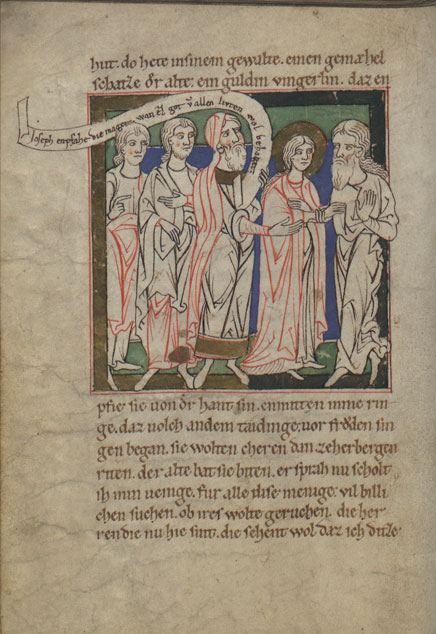 hut. do hete in sinem gewalte. einen gemæhel
schatze der alte: ein guldin vingerlin. daz en
Joseph enphahe die magede. wan er got
allen luten wol behaget
pfie sie von der haut sin. enmitten in me rin
ge. daz volch an dem taidinge: vor frœden sin
gen began. sie wolten cheren dan ze herbergen
riten. der alte bat sie biten. er sprah nu scholt
ih min wenige. fur alle dise menige: vil billi
chen suchen. ob ir es wolte geruchen. die her
ren die nu hie sint. die sehent wol daz ich ditze